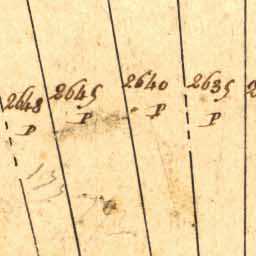 2648 2645 2640 2635 2
P P P P